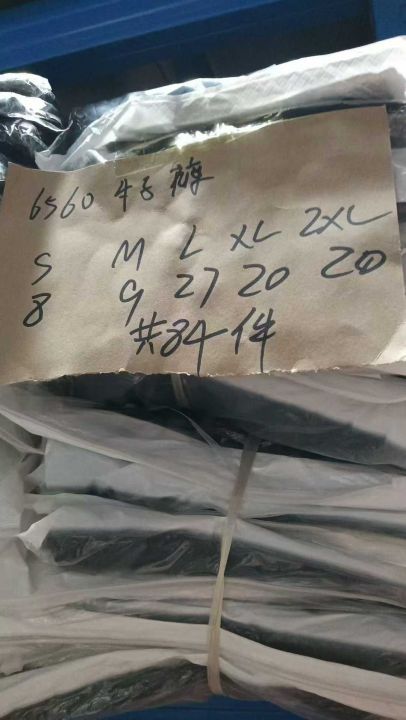 6560 号 裤
S M L XL 2XL
8 9 27 20 20
共84件